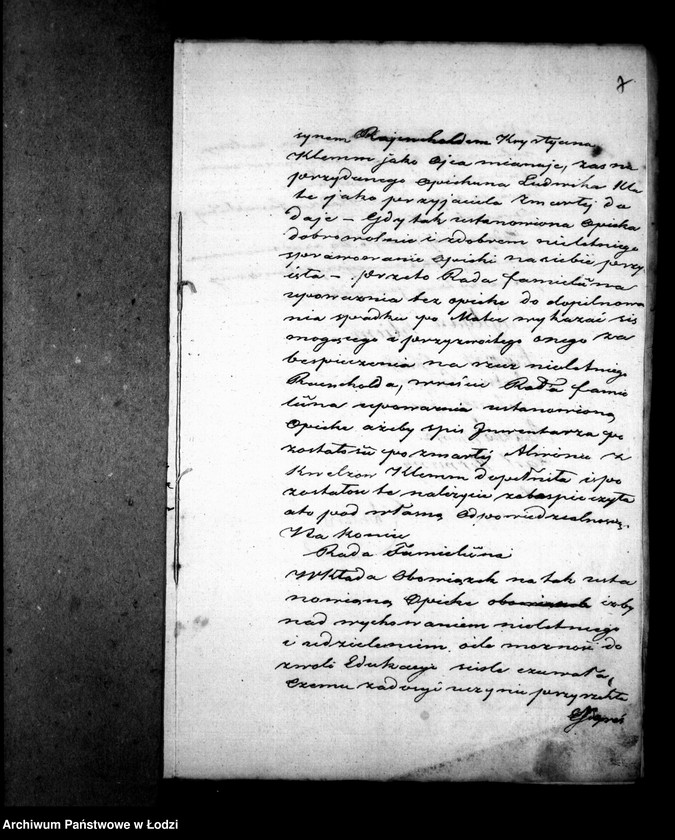 7
synem Rajencholdem Krystyana
Klemm jako Ojca mianuje, zas na
przydanego Opiekuna Ludwika Kle
te jako przyjaciela Zmarłej do
daje – Gdy tak ustanowiona Opieka
dobrowolnie i z dobrem nieletniego
sprawowanie Opieki na siebie przy
ięła – przeto Rada familiina
upoważnia też opiekę do dopilnowa
nia spadku po Matce wykazać się
mogącego i przyzwoitego onego za
bezpieczenia na rzecz nieletniego
Raencholda, wreście Rada fami
liina upoważnia ustanowioną
Opiekę ażeby spis Inwentarza po
zostałości po zmarłej z
Klemm dopełniła i po
zostałość tę należycie zabespieczyła
a to pod własną odpowiedzialnością.
Na koniec
Rada Familiina
Wkłada Obowiązek na tak usta
nowioną Opiekę iżby
nad wychowaniem nieletniego
i udzieleniem, o ile możność do
zwoli Edukacyi ściśle czuwała,
Czemu zadosyć uczynić przyrzekła